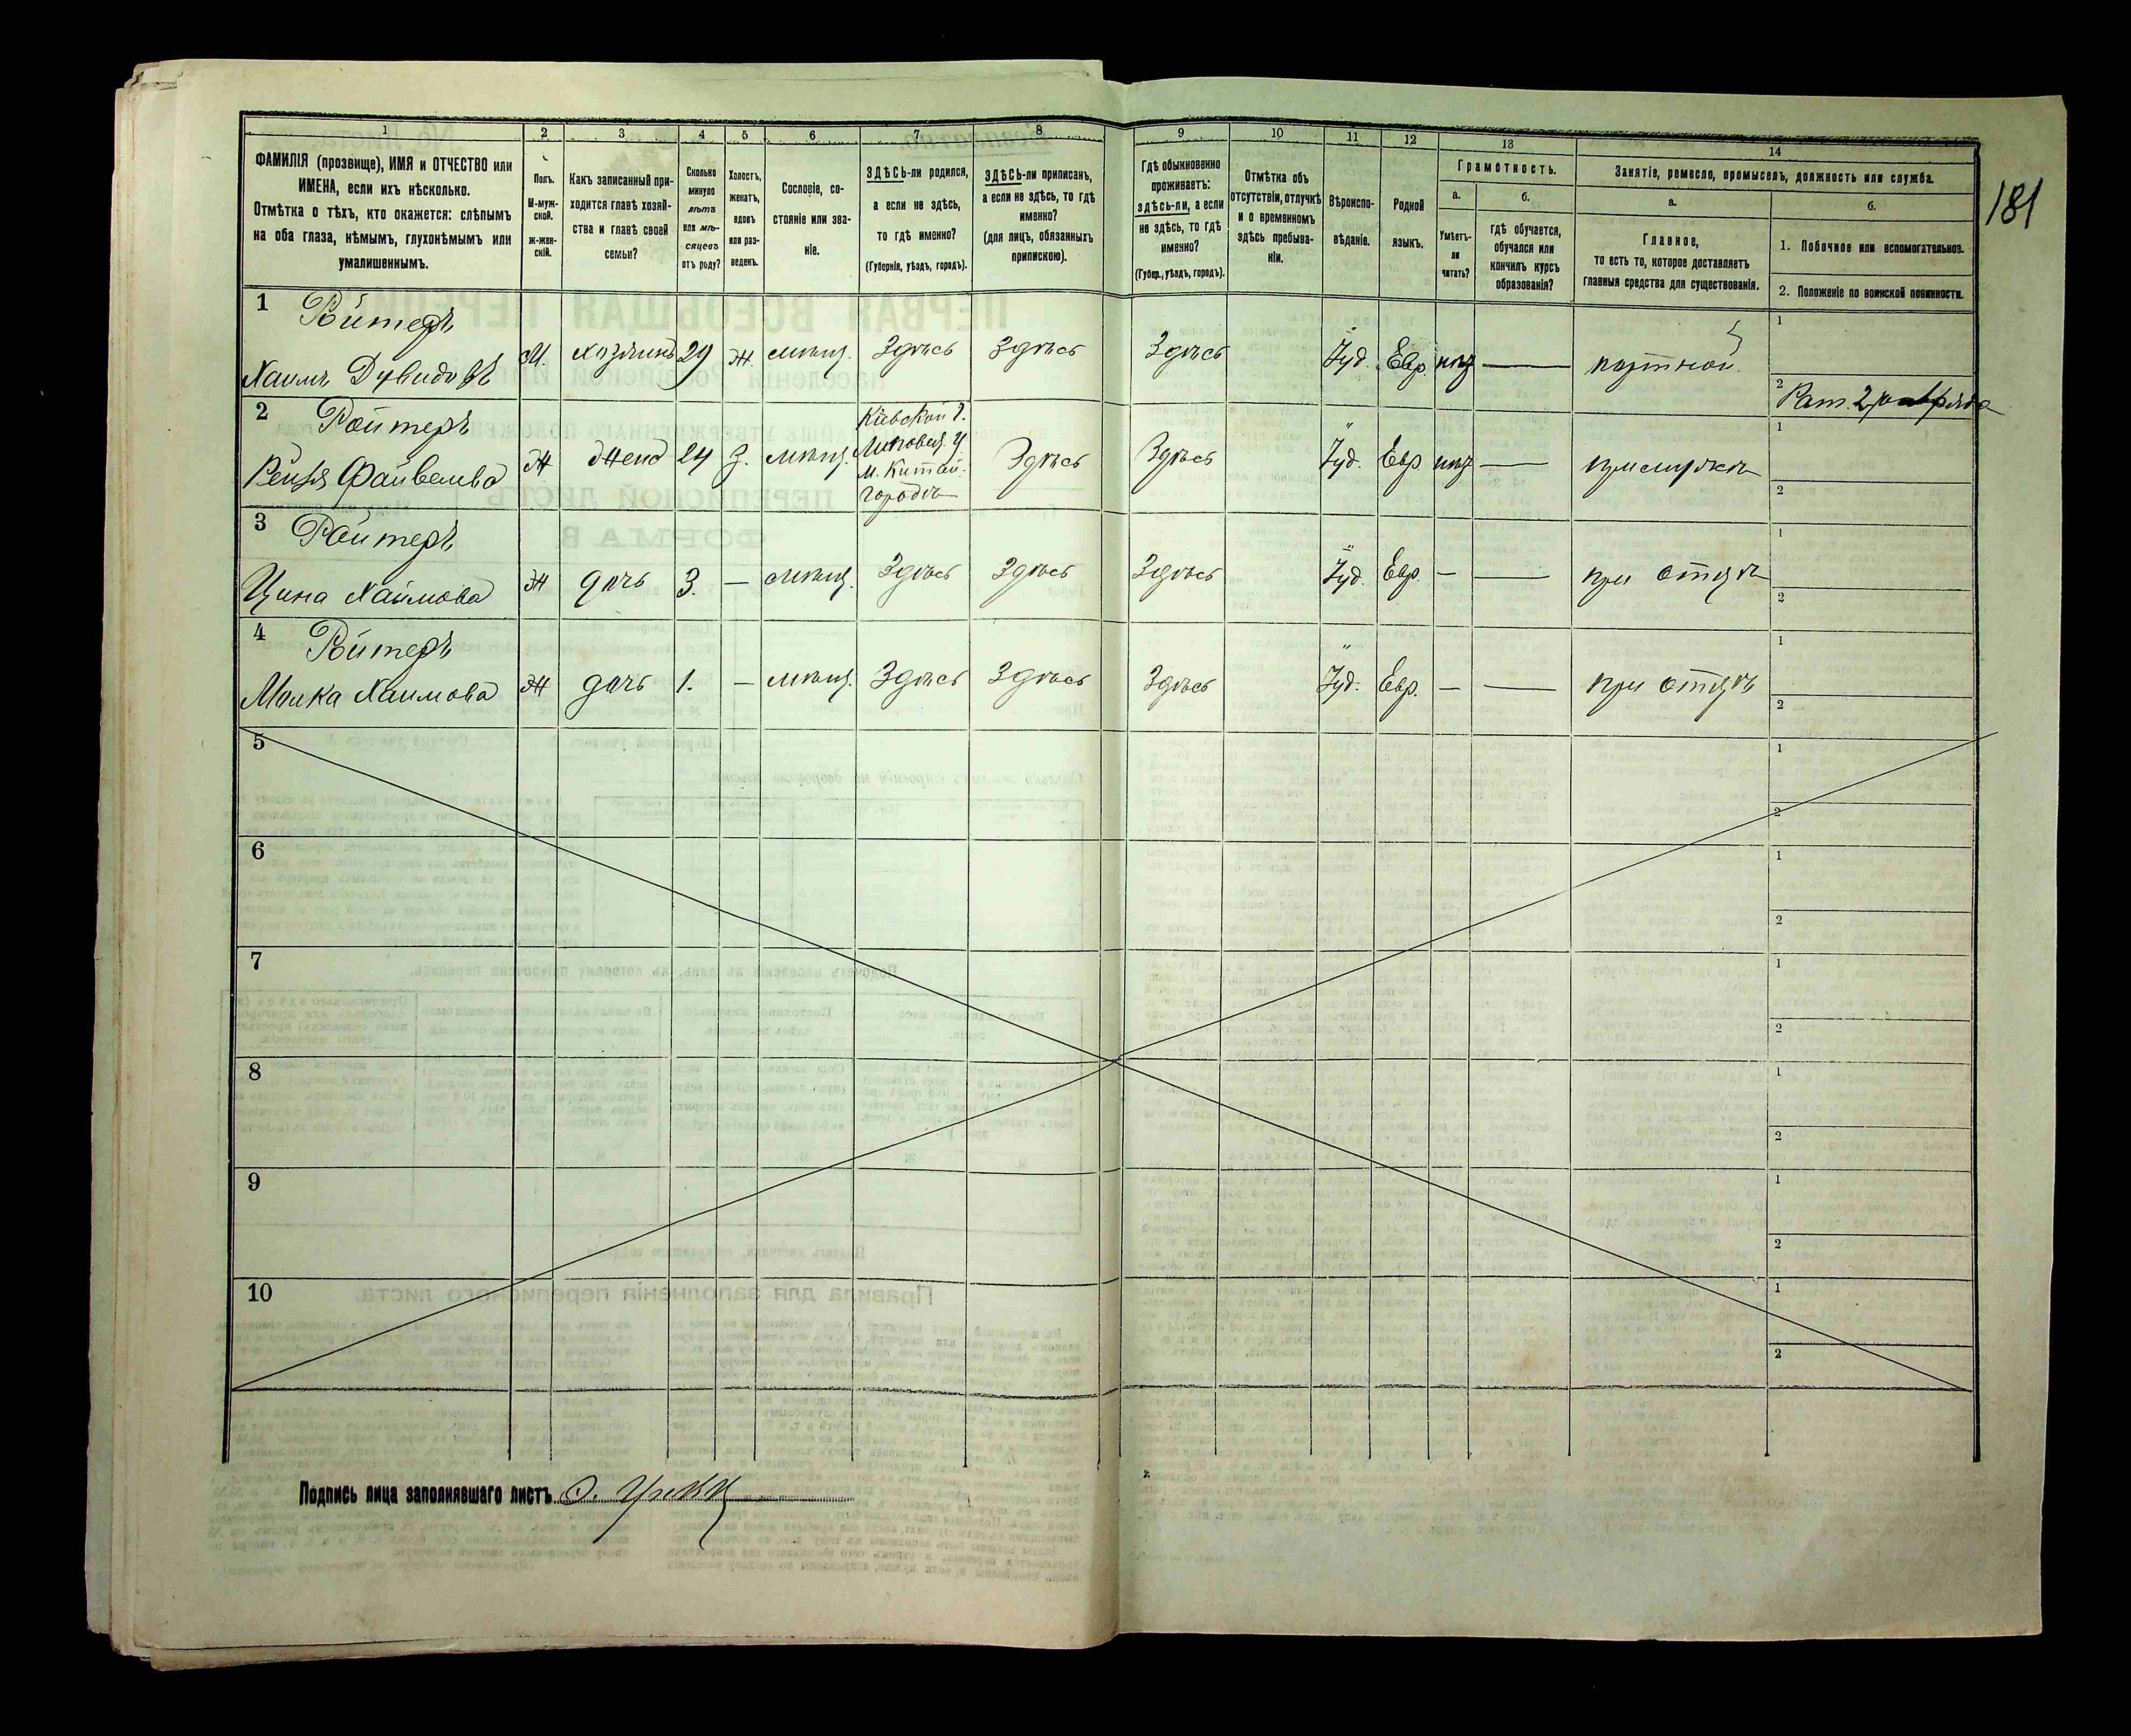 181
1 2 3 4 5 6 7 8 9 10 11 12 13 14
ФАМИЛІЯ (прозвище), ИМЯ и ОТЧЕСТВО или
ИМЕНА, если ихъ нѣсколько.
Отмѣтка о тѣхъ, кто окажется: слѣпымъ
на оба глаза, нѣмымъ, глухонѣмымъ или
умалишеннымъ.
Полъ.
М-муж-
ской.
ж-жен-
скій.
Какъ записанный при-
ходится главѣ хозяй-
ства и главѣ своей
семьи?
Сколько
минуло
лѣтъ
или мѣ-
сяцевъ
отъ роду?
Холостъ,
женатъ,
вдовъ
или раз-
веденъ.
Сословіе, со-
стояніе или зва-
ніе.
ЗДѢСЬ-ли родился,
а если не здѣсь,
то гдѣ именно?
(Губернія, уѣздъ, городъ).
ЗДѢСЬ-ли приписанъ,
а если не здѣсь, то гдѣ
именно?
(для лицъ, обязанныхъ
припискою).
Гдѣ обыкновенно
проживаетъ:
здѣсь-ли, а если
не здѣсь, то гдѣ
именно?
(Губер., уѣздъ, городъ).
Отмѣтка объ
отсутствіи, отлучкѣ
и о временномъ
здѣсь пребыва-
ніи.
Вѣроиспо-
вѣданіе.
Родной
языкъ.
Грамотность.
а.
Умѣетъ-
ли
читать?
б.
гдѣ обучается,
обучался или
кончилъ курсъ
образованія?
Занятіе, ремесло, промыселъ, должность или служба.
а.
Главное,
то есть то, которое доставляетъ
главныя средства для существованія.
б.
1. Побочное или вспомогательное.
2. Положеніе по воинской повинности.
1 Ройтеръ
Хаимъ Дувидовъ М. хозяинъ 29 ж. мѣщ. Здѣсь Здѣсь Здѣсь Іуд. Евр. — портной. 1
2 Рат. 2 разряда
2 Ройтеръ
Рейзя Файвелева Ж жена 24 З. мѣщ. Кіевской г.
Липовец. у
м. Китай-
городъ
Здѣсь Здѣсь Іуд. Евр — при мужѣ 1
2
3 Ройтеръ
Цина Хаимова Ж дочь 3. — мѣщ. Здѣсь Здѣсь Здѣсь Іуд. Евр. — — при отцѣ 1
2
4 Ройтеръ
Малка Хаимова Ж дочь 1. — мѣщ. Здѣсь Здѣсь Здѣсь Іуд. Евр. — — при отцѣ 1
2
5 1
2
6 1
2
7 1
2
8 1
2
9 1
2
10 1
2
Подпись лица заполнявшаго листъ